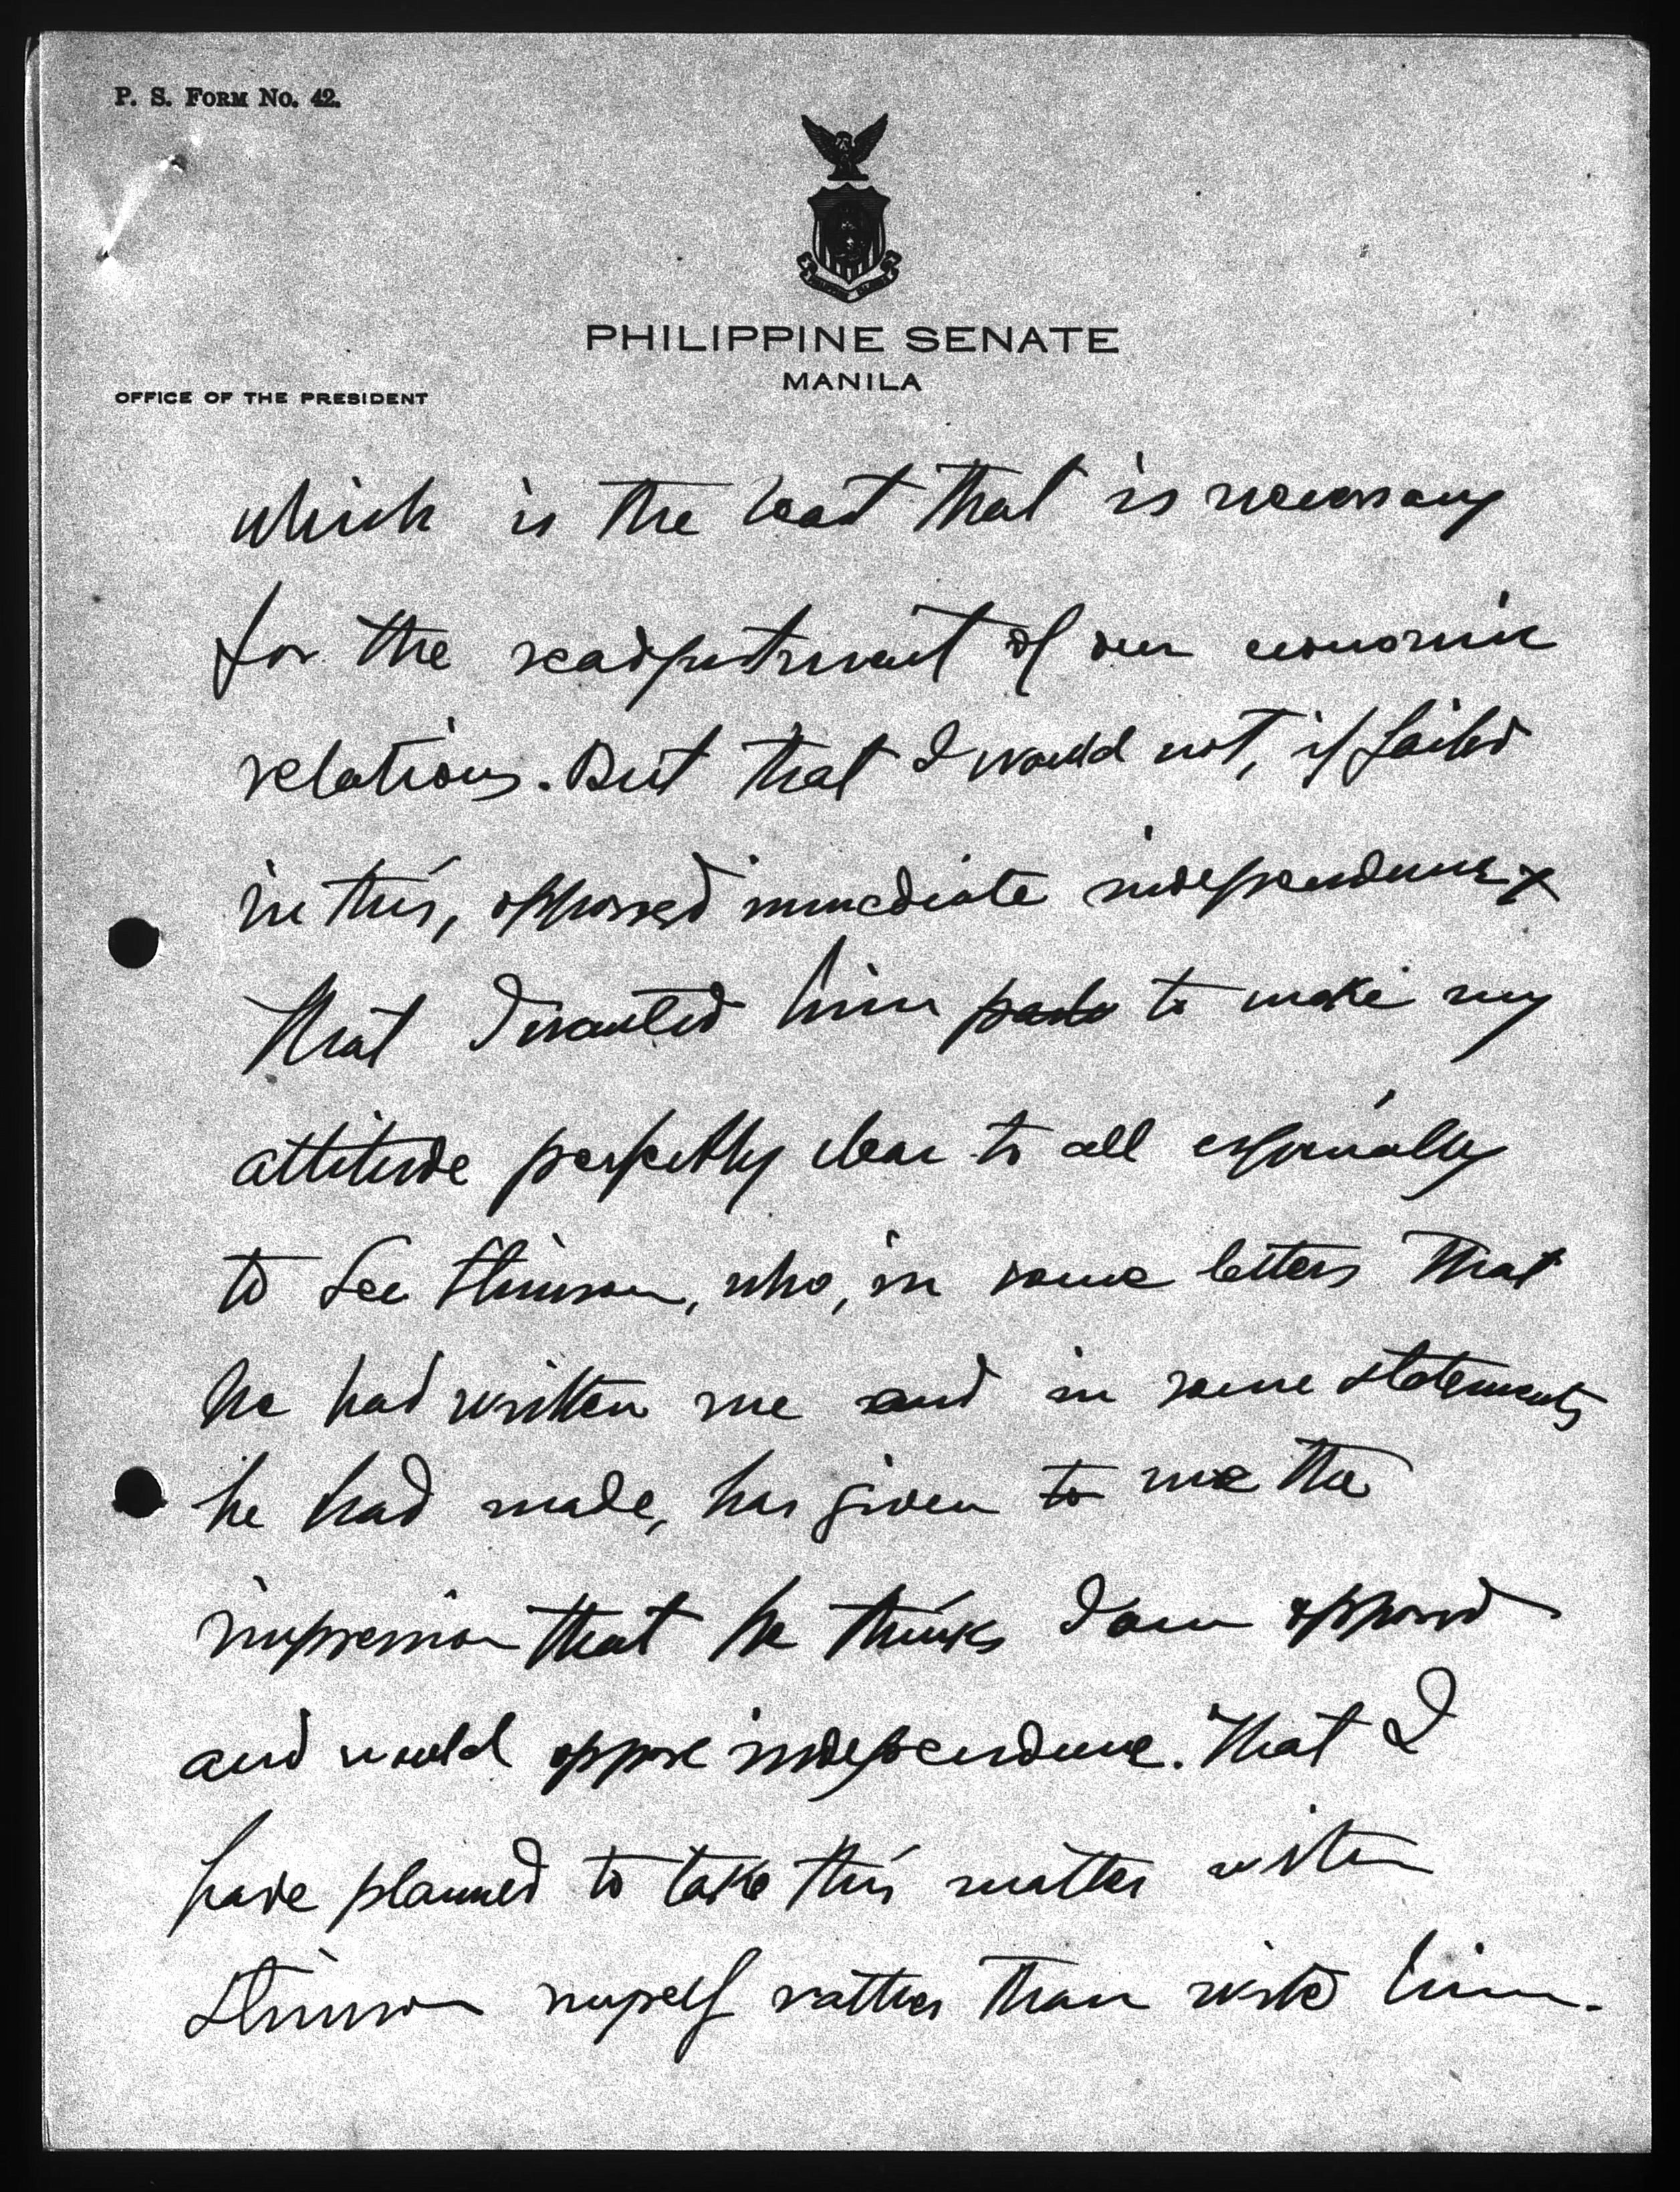 P. S. FORM NO. 42.
PHILIPPINE SENATE
MANILA
OFFICE OF THE PRESIDENT
which is the least that is necessary
for the readjustment of our economic
relations. But that I would not, if failed
in this, opposed immediate independence
that I wanted him to make my
attitude perfectly clear to all especially
to Sec Stimson, who, in some letters that
he had written me and in some statements
he had made, has given to me the
impression that he thinks I am opposed
and would oppose independence. That I
have planned to take this matter with
Stimson myself rather than write him.